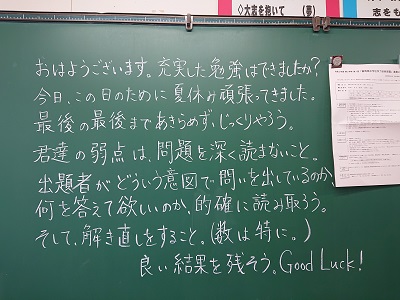 ◇大志を抱いて(夢)
志をも
おはようございます。充実した勉強はできましたか?
今日、この日のために夏休み頑張ってきました。
最後の最後まであきらめず、じっくりやろう。
君達の弱点は、問題を深く読まないこと。
出題者がどういう意図で問いを出しているのか、
何を答えて欲しいのか、的確に読み取ろう。
そして、解き直しをすること。(数は特に。)
良い結果を残そう。Good Luck!